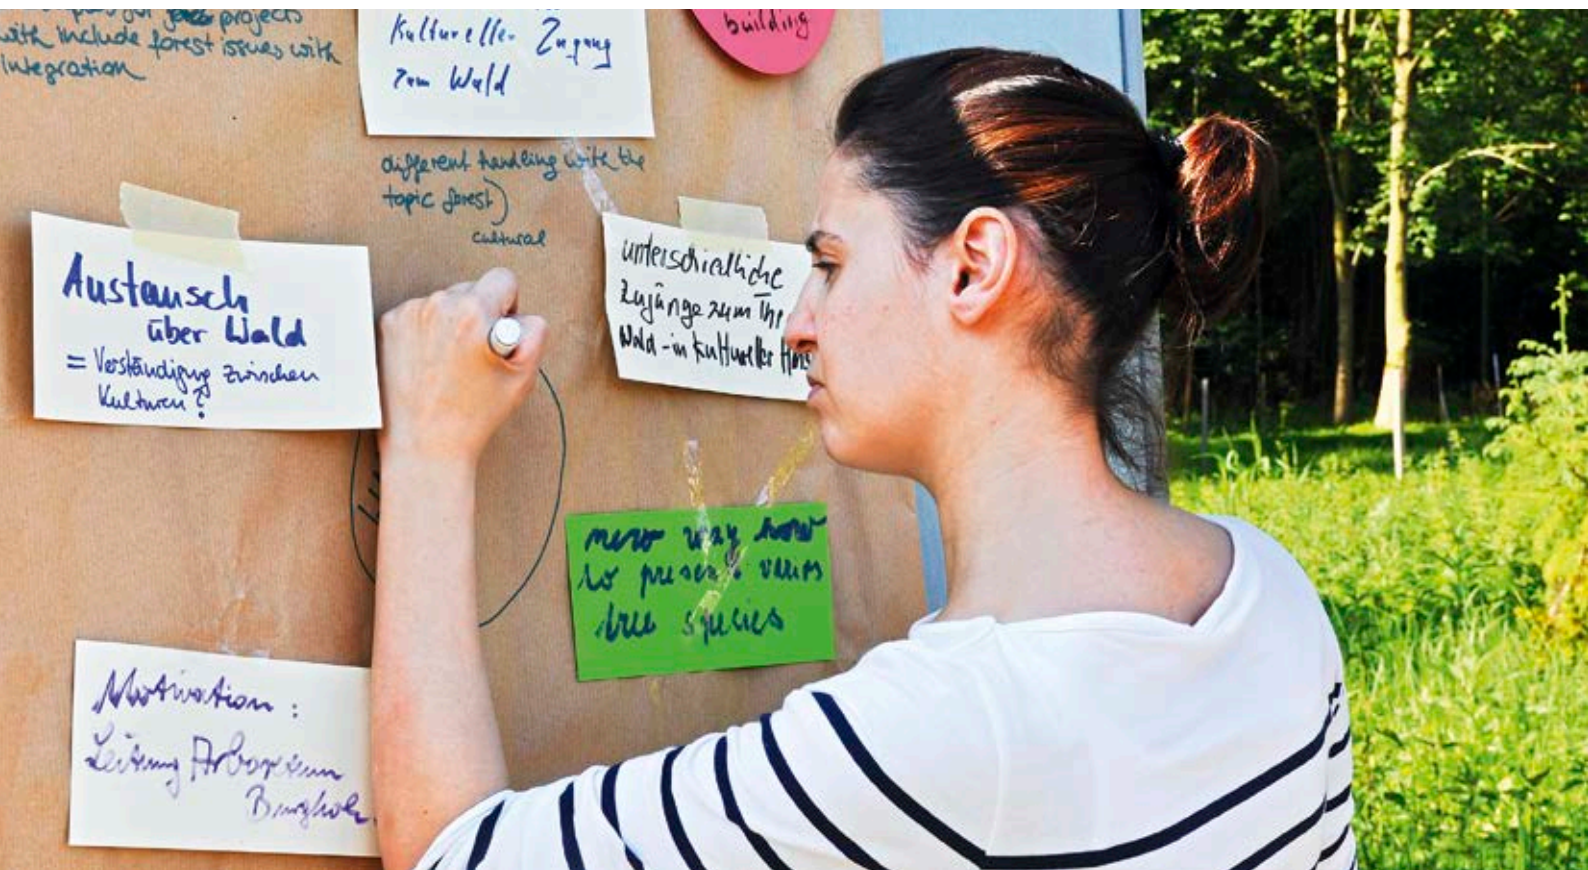 projects
with include forest issues with
integration
Kultureller Zugang
zum Wald
building
different handling with the
topic forest)
cultural
Austausch
über Wald
= Verständigung zwischen
Kulturen?
unterschiedliche
Zugänge zum The
Wald - in kultureller Hins
new way how
to present
tree species
Motivation:
Leitung Arboretum
Burgholz